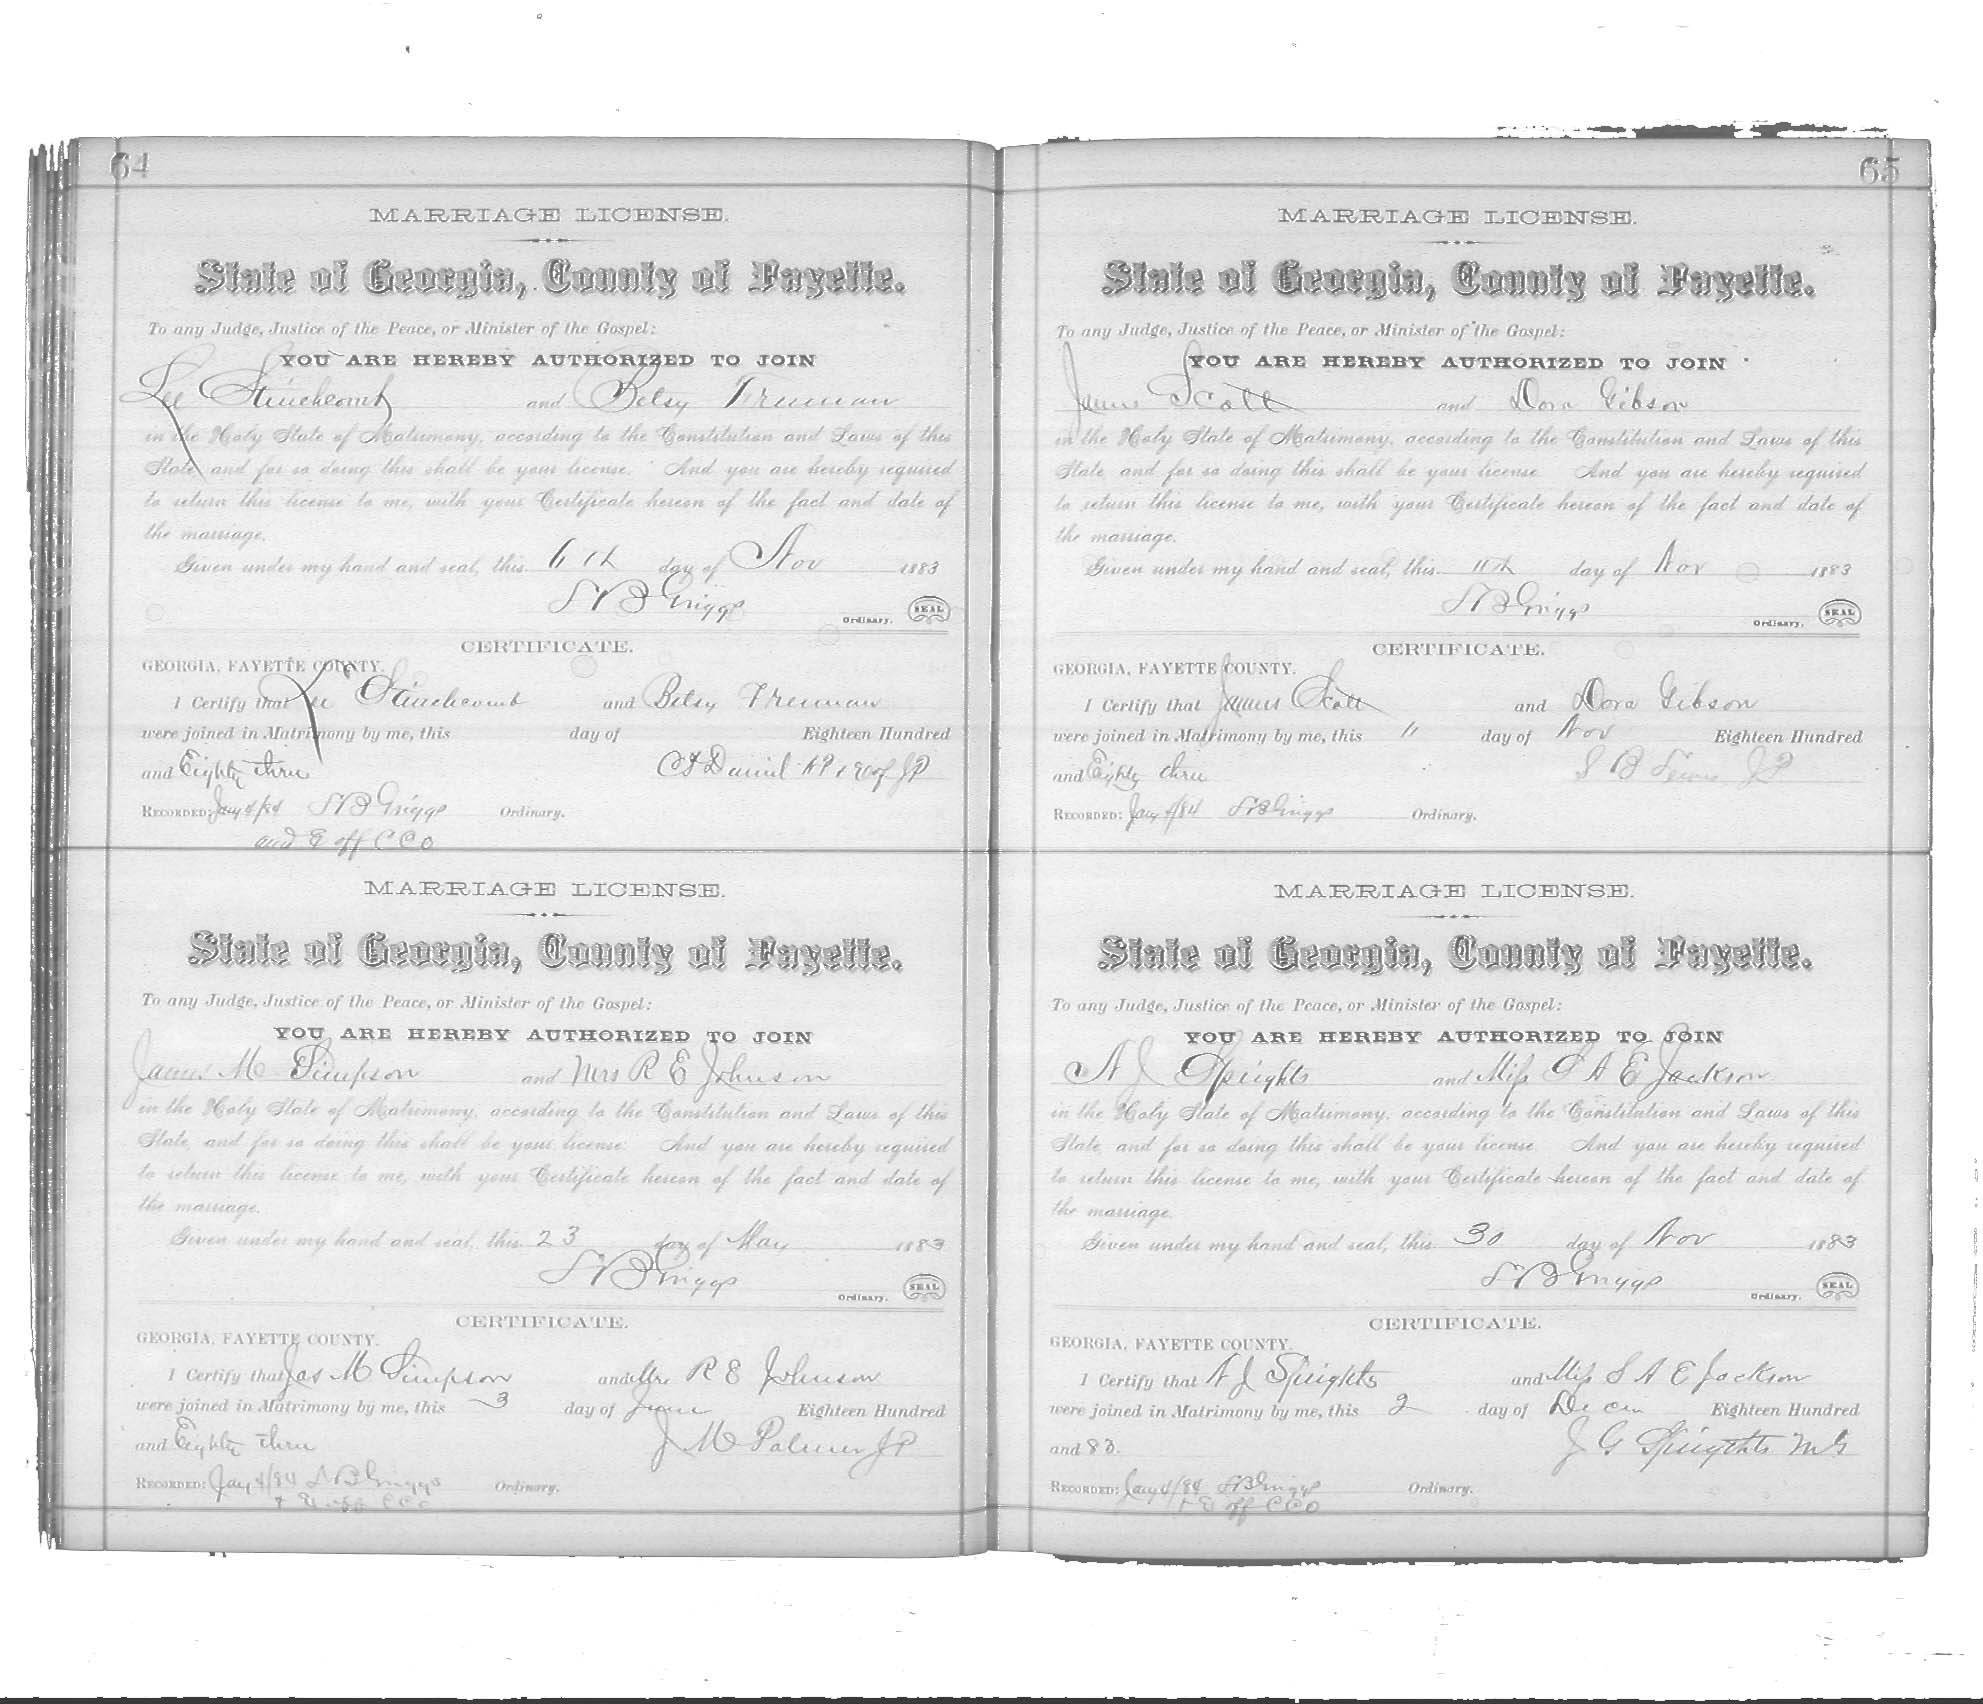 64
MARRIAGE LICENSE.
State of Georgia, County of Fayette.
To any Judge, Justice of the Peace, or Minister of the Gospel:
YOU ARE HEREBY AUTHORIZED TO JOIN
Lee Stinchcomb and Betsy Freeman
in the Holy State of Matrimony, according to the Constitution and Laws of this
State, and for so doing this shall be your license. And you are hereby required
to return this license to me, with your Certificate hereon of the fact and date of
the marriage.
Given under my hand and seal, this 6th day of Nov 1883
Griggs Ordinary. SEAL
CERTIFICATE.
GEORGIA, FAYETTE COUNTY.
I Certify that Lee Stinchcomb and Betsy Freeman
were joined in Matrimony by me, this day of Eighteen Hundred
and Eighty three Daniel
RECORDED: Jany 4/84 Griggs Ordinary.
and E off C C O
MARRIAGE LICENSE.
State of Georgia, County of Fayette.
To any Judge, Justice of the Peace, or Minister of the Gospel:
YOU ARE HEREBY AUTHORIZED TO JOIN
James M Simpson and Mrs R E Johnson
in the Holy State of Matrimony, according to the Constitution and Laws of this
State, and for so doing this shall be your license. And you are hereby required
to return this license to me, with your Certificate hereon of the fact and date of
the marriage.
Given under my hand and seal, this 23 day of May 1883
Griggs Ordinary. SEAL
CERTIFICATE.
GEORGIA, FAYETTE COUNTY.
I Certify that Jas M Simpson and Mrs R E Johnson
were joined in Matrimony by me, this 3 day of June Eighteen Hundred
and Eighty three J M Palmer JP
RECORDED: Jany 4/84 Griggs Ordinary.
& E off C C O
65
MARRIAGE LICENSE.
State of Georgia, County of Fayette.
To any Judge, Justice of the Peace, or Minister of the Gospel:
YOU ARE HEREBY AUTHORIZED TO JOIN
James Scott and Dora Gibson
in the Holy State of Matrimony, according to the Constitution and Laws of this
State, and for so doing this shall be your license. And you are hereby required
to return this license to me, with your Certificate hereon of the fact and date of
the marriage.
Given under my hand and seal, this 11th day of Nov 1883
Griggs Ordinary. SEAL
CERTIFICATE.
GEORGIA, FAYETTE COUNTY.
I Certify that James Scott and Dora Gibson
were joined in Matrimony by me, this 11 day of Nov Eighteen Hundred
and Eighty three S B Lewis JP
RECORDED: Jany 4/84 Griggs Ordinary.
MARRIAGE LICENSE.
State of Georgia, County of Fayette.
To any Judge, Justice of the Peace, or Minister of the Gospel:
YOU ARE HEREBY AUTHORIZED TO JOIN
A J Speights and Miss S A E Jackson
in the Holy State of Matrimony, according to the Constitution and Laws of this
State, and for so doing this shall be your license. And you are hereby required
to return this license to me, with your Certificate hereon of the fact and date of
the marriage.
Given under my hand and seal, this 30 day of Nov 1883
Griggs Ordinary. SEAL
CERTIFICATE.
GEORGIA, FAYETTE COUNTY.
I Certify that A J Speights and Miss S A E Jackson
were joined in Matrimony by me, this 2 day of Decem Eighteen Hundred
and 83. J G Speights MG
RECORDED: Jany 4/84 Griggs Ordinary.
& E off C C O